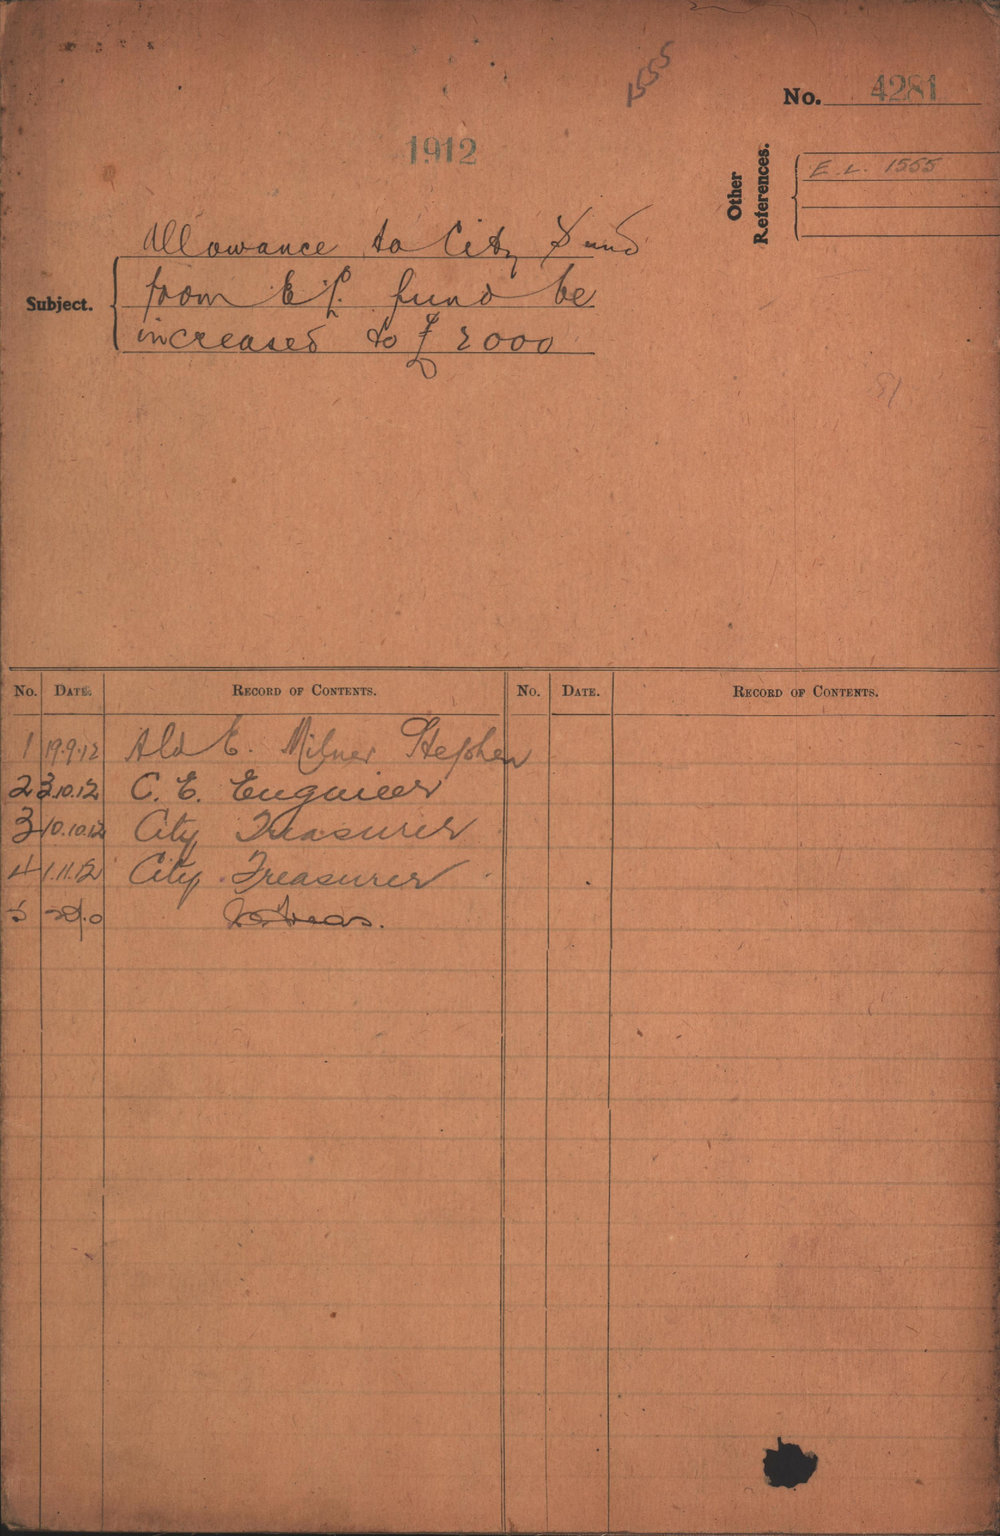 1555
No. 4281
1912
Other References.
E. L. 1555
Subject.
Allowance to City Fund
from E. L. fund be
increased to £2000
No. Date. Record of Contents. No. Date. Record of Contents.
1 19.9.12 Ald E. Milner Stephen
2 3.10.12 C. E. Engineer
3 10.10.12 City Treasurer
4 1.11.12 City Treasurer
5